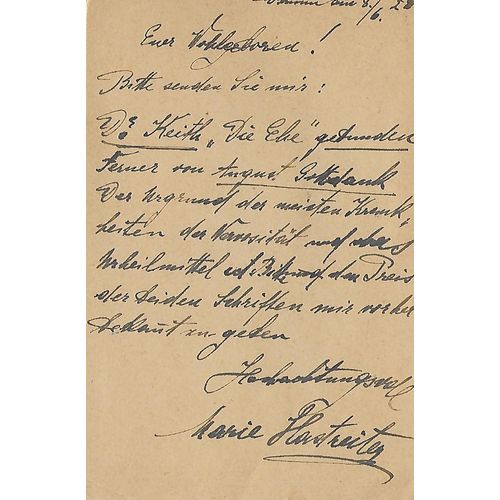 am 8./6. 28
Euer Wohlgeboren!
Bitte senden Sie mir:
Dr. Keith „Die Ehe" gebunden
Ferner von August Gottdank
Der Urgrund der meisten Krank-
heiten der Nervosität und
Urheilmittel den Preis
der beiden Schriften mir vorher
bekant zu geben
Hochachtungsvoll
Marie Hastreiter